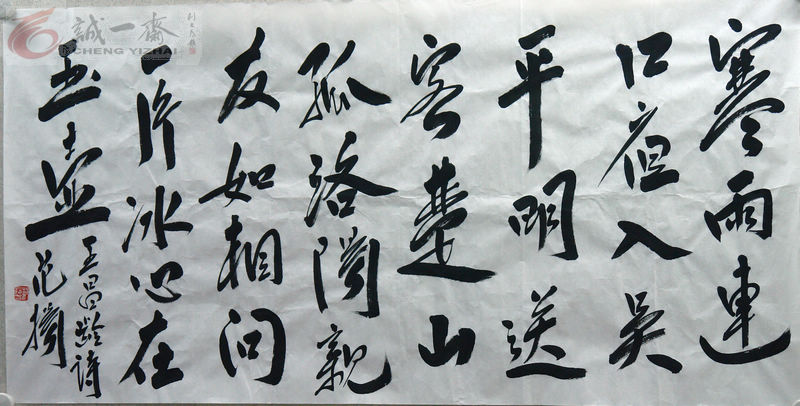 寒雨連
江夜入吴
平明送
客楚山
孤洛陽親
友如相問
一片冰心在
玉壺
王昌齡詩
范
誠一齋
CHENG YIZHAI